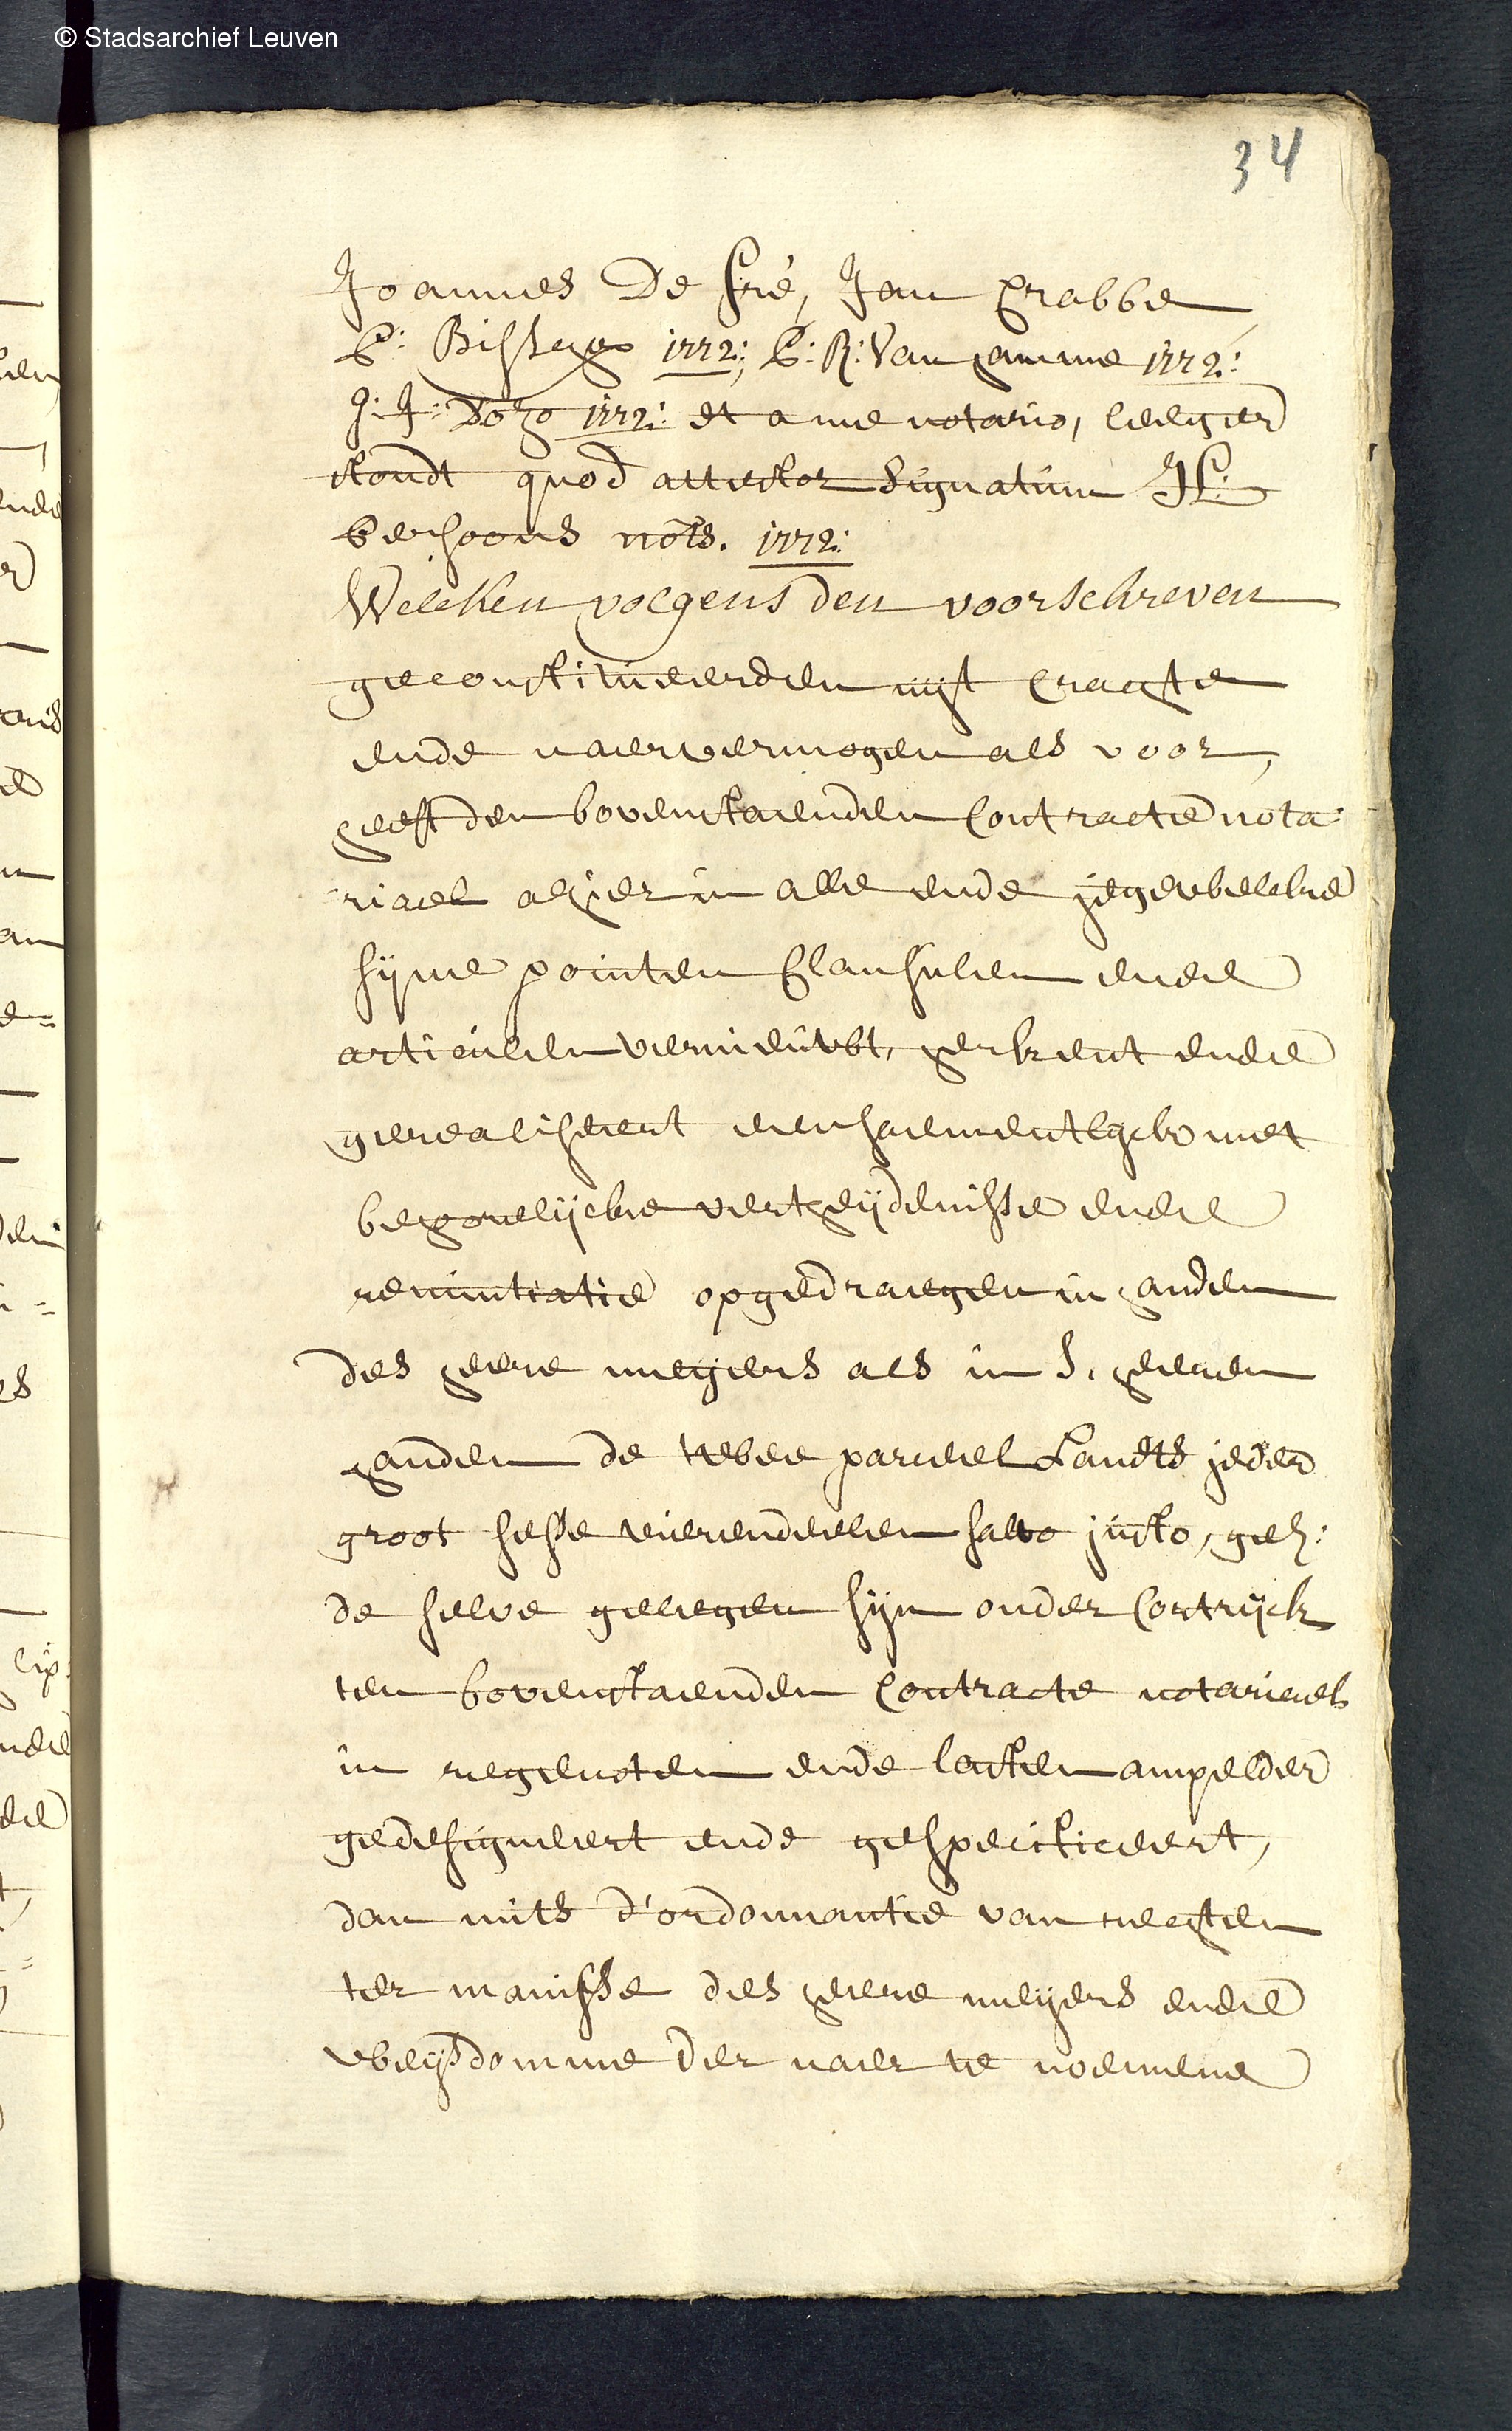 © Stadsarchief Leuven
34
Joannes De Fré, Jan Crabbe
1772; Van hamme 1772:
1772: et a me notario, leeger
stondt quod attestor signatum
nots. 1772:
Welcken volgens den voorschreven
geconstitueerden uijt crachte
ende naervermogen als voor,
heeft den bovenstaenden contracte nota
riael alhier in alle ende jegewelcke
sijne pointen clausulen ende
articulen vernieuwt, herkent ende
gerealiseert eensaementlyck met
behoorelijcke verthijdenisse ende
renuntiatie opgedraegen in handen
des heere meyers als in s. heeren
handen de twee parceel Landts jeder
groot sesse vierendeelen salvo justo, gel:
de selve gelegen sijn onder Cortryck
ten bovenstaenden contracte notariael
in regenoten ende lasten ampelder
gedesigneert ende gespecificeert,
dan mits d'ordonnantie van rechten
ter manisse des heere meyers ende
wijsdomme der naer te noemene